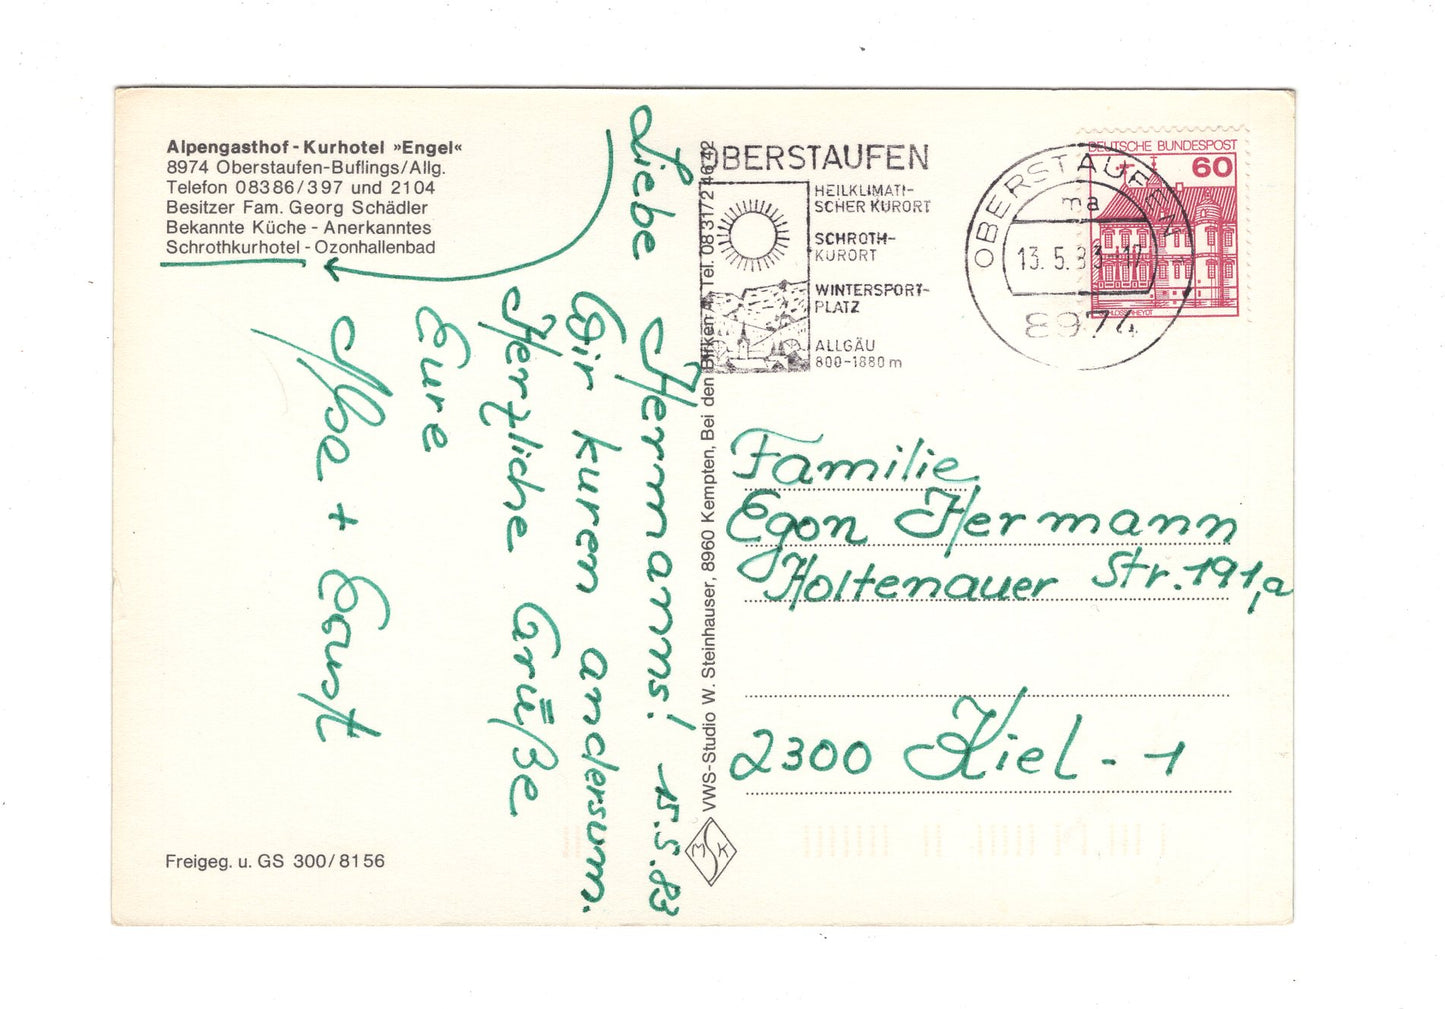 Alpengasthof - Kurhotel »Engel«
8974 Oberstaufen-Buflings/Allg.
Telefon 08386/397 und 2104
Besitzer Fam. Georg Schädler
Bekannte Küche - Anerkanntes
Schrothkurhotel - Ozonhallenbad
Liebe Hermanns! 15.5.83
Wir kuren andersum.
Herzliche Grüße
Eure
Ilse + Ernst
Freigeg. u. GS 300/8156
VWS-Studio W. Steinhauser, 8960 Kempten, Bei den Birken Tel. 0831/2 46 42
OBERSTAUFEN
HEILKLIMATI-
SCHER KURORT
SCHROTH-
KURORT
WINTERSPORT-
PLATZ
ALLGÄU
800-1880 m
OBERSTAUFEN
ma
13.5.83-17
8974
DEUTSCHE BUNDESPOST
60
SCHLOSS RHEYDT
Familie
Egon Hermann
Holtenauer Str. 191,a
2300 Kiel - 1